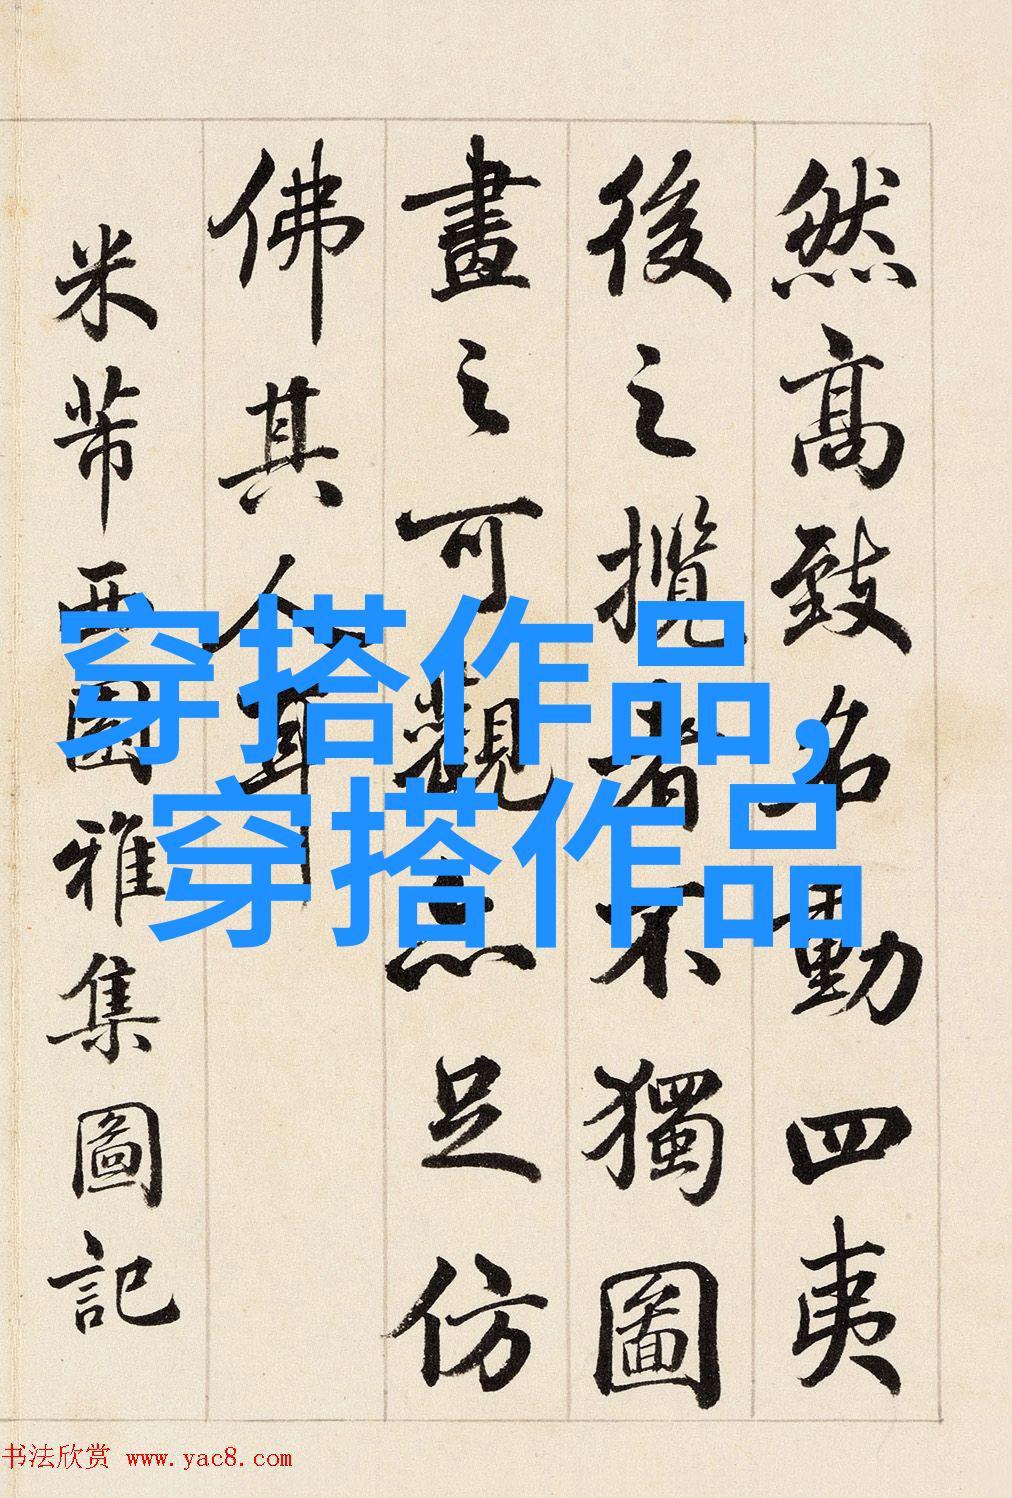 然高致名動四夷
後之揽者不獨圖
畫之可觀亦足仿
佛其人耳
米芾西園雅集圖記
穿搭作品,
穿搭作品
书法欣赏 www.yac8.com